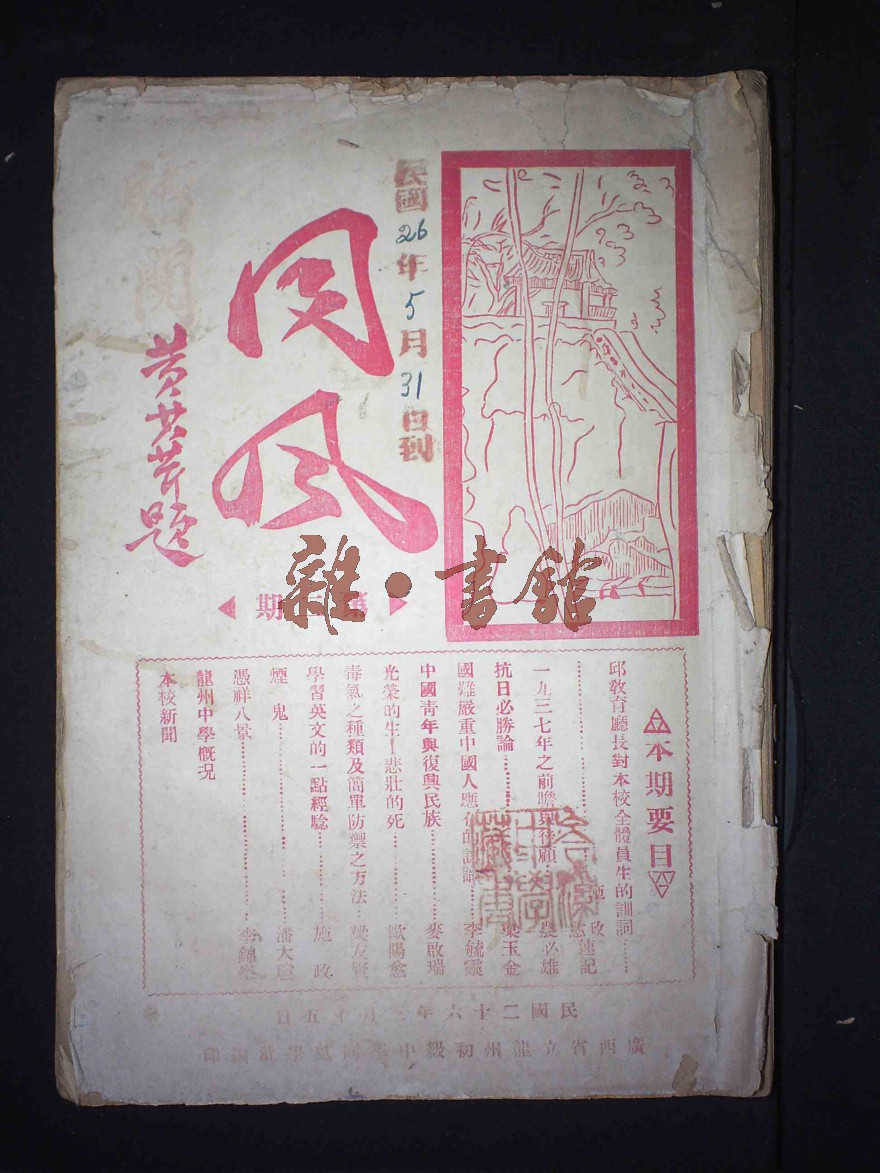 民國26年5月31日到
同風
黃共芹題
雜·書館
期
本期要目
邱教育廳長對本校全體員生的訓詞……
……施政
速記
一九三七年之前瞻與後顧…農必雄
抗日必勝論………梁玉金
國難嚴重中國人應有的認識……李毓靈
中國青年與復興民族………麥啟瑞
光榮的生—悲壯的死………歐陽愈
毒氣之種類及簡單防禦之方法…梁友賢
學習英文的一點經驗………施政
煙鬼………潘大
憑祥八景………李錦
龍州中學概況
本校新聞
民國二十六年三月十五日
廣西省立龍州初級中學同風學社編印